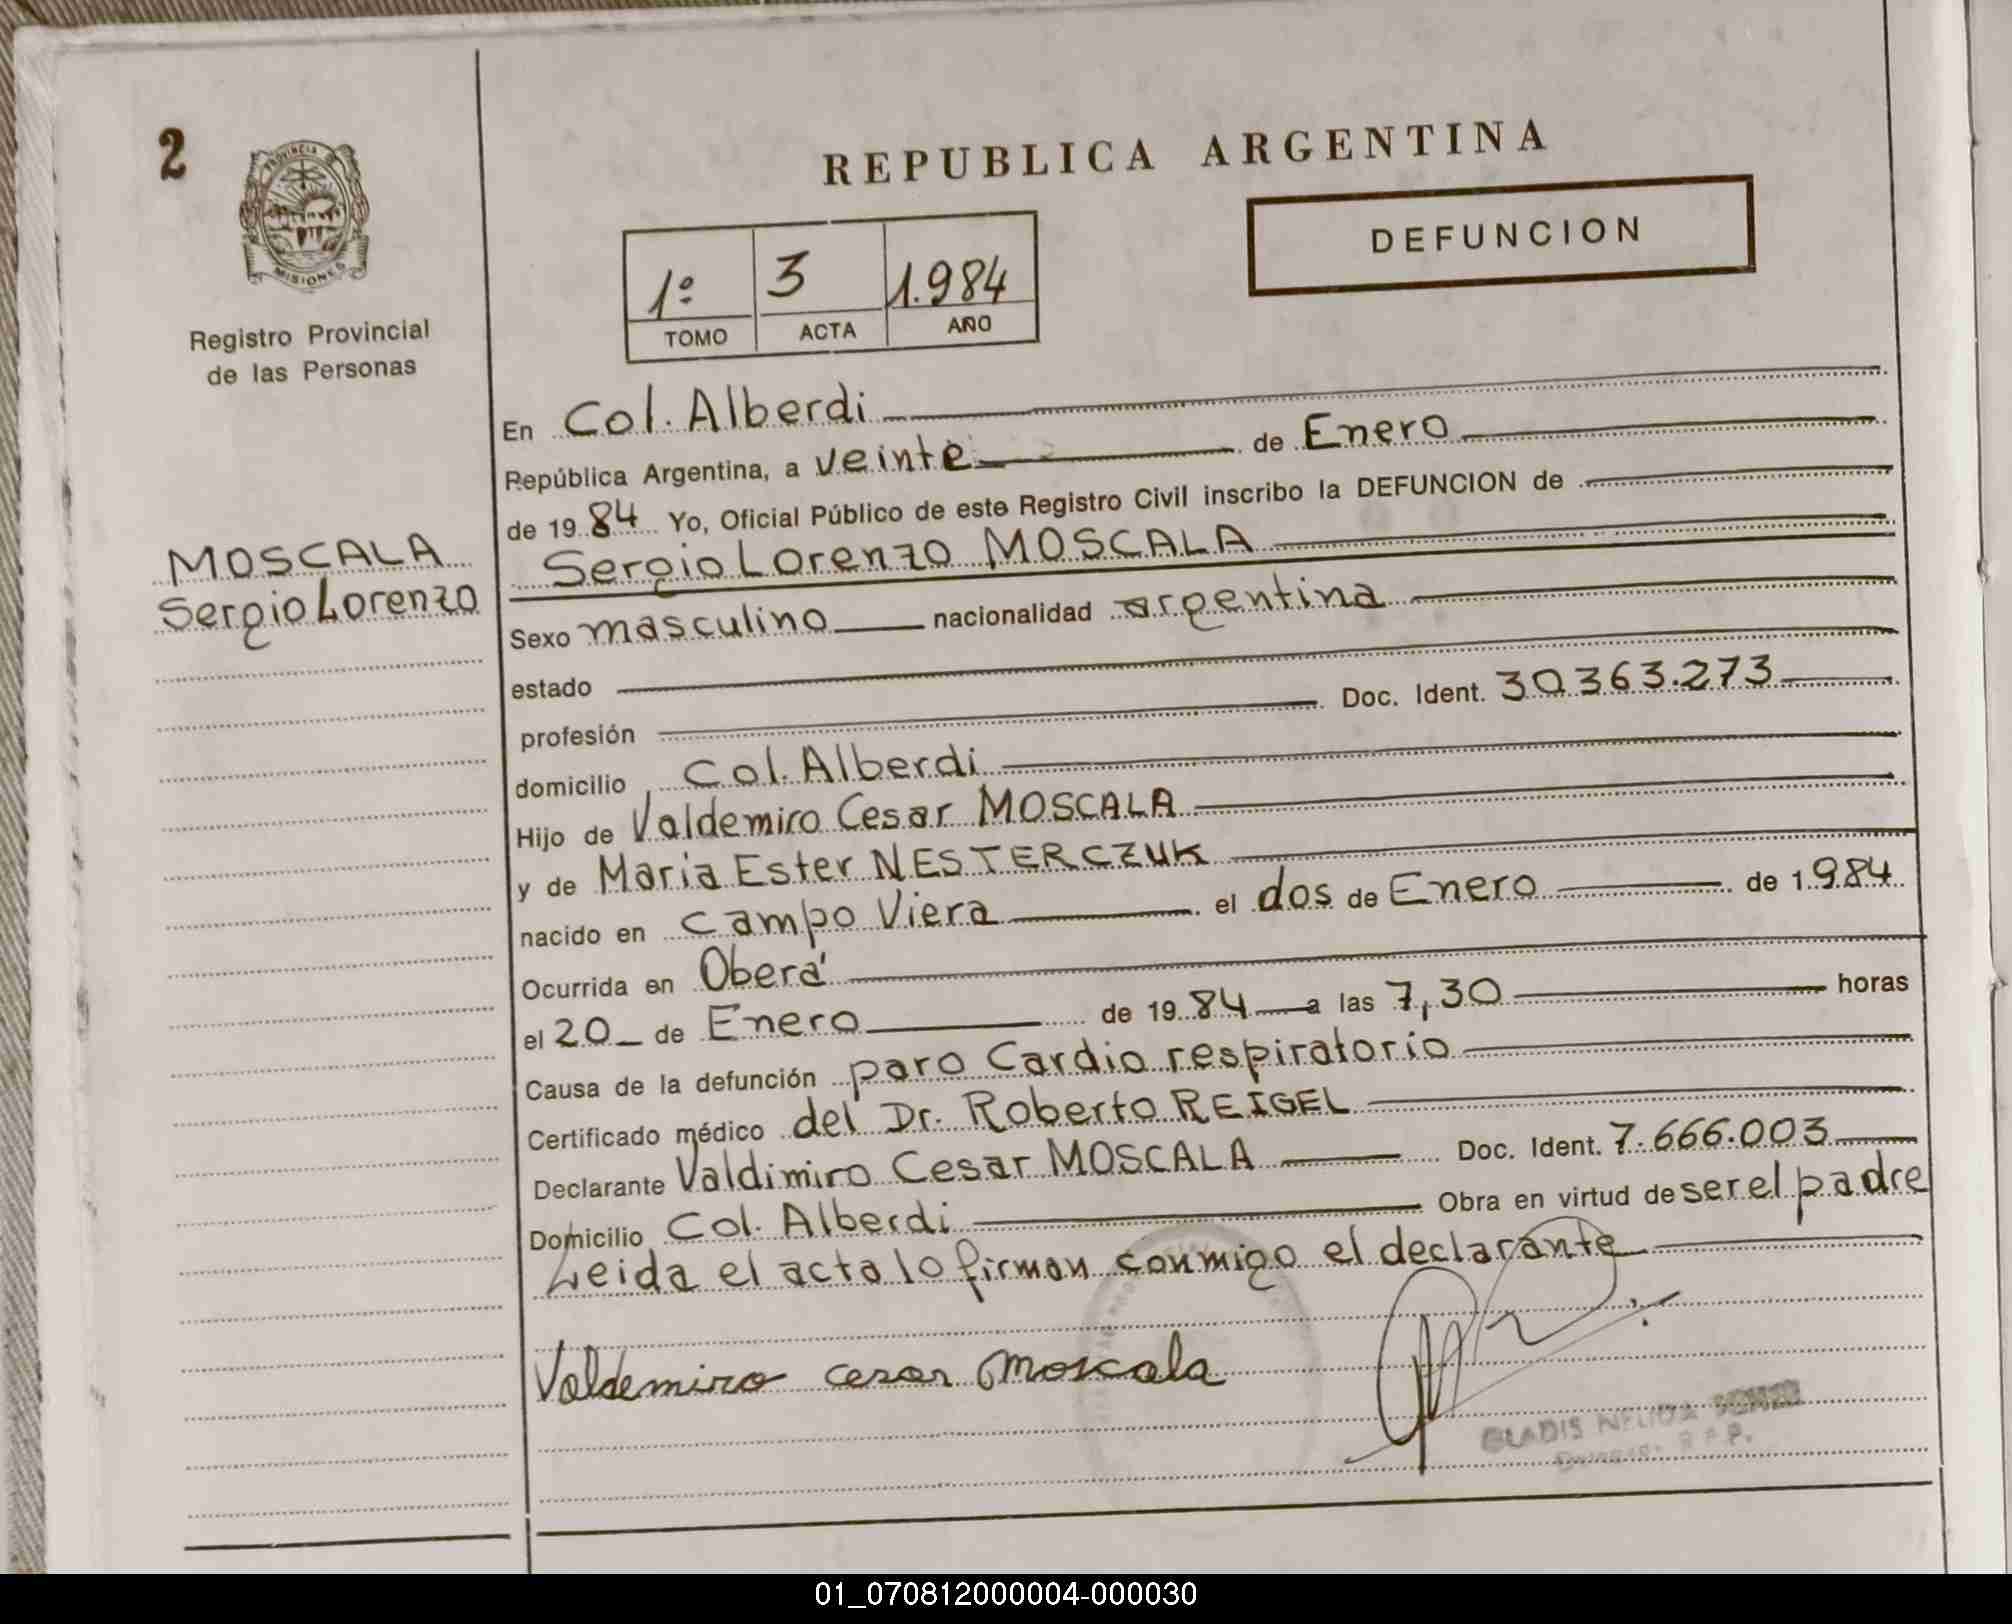 2
PROVINCIA DE
MISIONES
Registro Provincial
de las Personas
MOSCALA
Sergio Lorenzo
REPUBLICA ARGENTINA
DEFUNCION
1º 3 1.984
TOMO ACTA AÑO
En Col. Alberdi
República Argentina, a veinte de Enero
de 19 84 Yo, Oficial Público de este Registro Civil inscribo la DEFUNCION de
Sergio Lorenzo MOSCALA
Sexo masculino nacionalidad argentina
estado
profesión Doc. Ident. 30.363.273
domicilio Col. Alberdi
Hijo de Valdemiro Cesar MOSCALA
y de Maria Ester NESTERCZUK
nacido en Campo Viera el dos de Enero de 1.984
Ocurrida en Oberá
el 20 de Enero de 19 84 a las 7,30 horas
Causa de la defunción paro Cardio respiratorio
Certificado médico del Dr. Roberto REIGEL
Declarante Valdimiro Cesar MOSCALA Doc. Ident. 7.666.003
Domicilio Col. Alberdi Obra en virtud de ser el padre
Leida el acta lo firman conmigo el declarante
Valdemiro cesar Moscala
GLADIS NELIDA
01_070812000004-000030